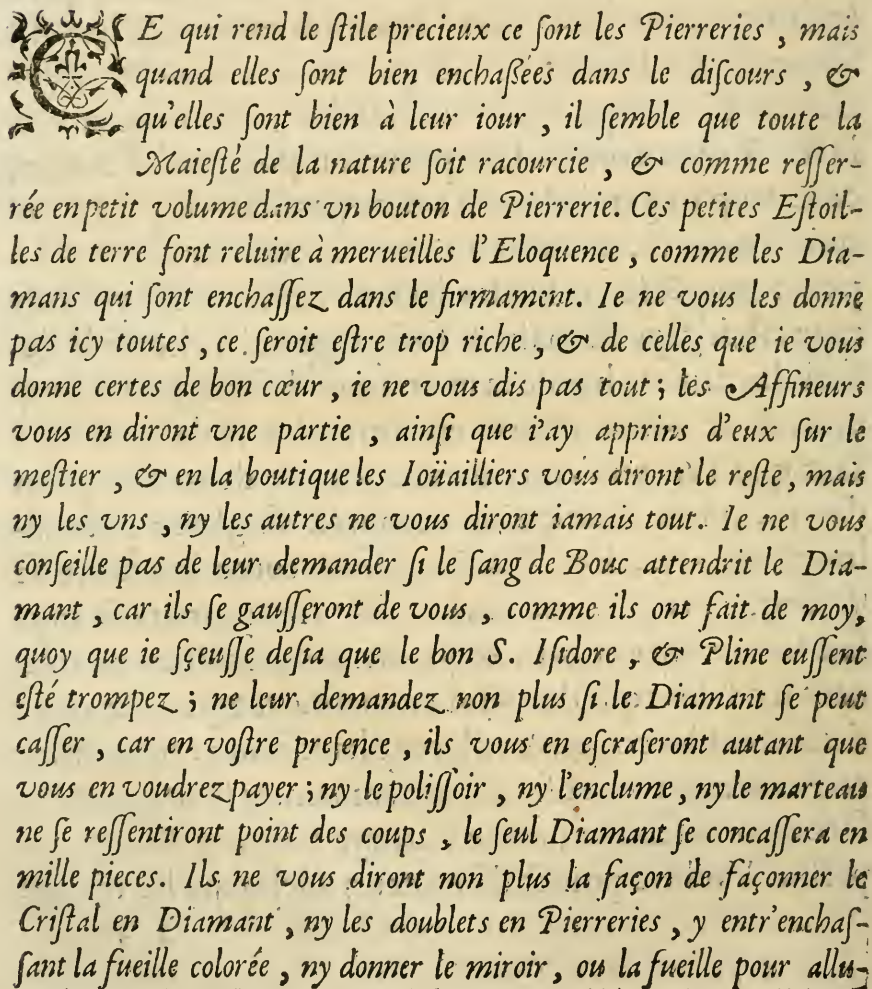 CE qui rend le ſtile precieux ce ſont les Pierreries , mais
quand elles ſont bien enchaßées dans le diſcours , &
qu'elles ſont bien à leur iour , il ſemble que toute la
Maieſté de la nature ſoit racourcie , & comme reſſer-
rée en petit volume dans vn bouton de Pierrerie. Ces petites Eſtoil-
les de terre font reluire à merueilles l'Eloquence , comme les Dia-
mans qui ſont enchaſſez dans le firmament. Ie ne vous les donne
pas icy toutes , ce ſeroit eſtre trop riche , & de celles que ie vous
donne certes de bon cœur , ie ne vous dis pas tout ; les Affineurs
vous en diront vne partie , ainſi que i'ay apprins d'eux ſur le
meſtier , & en la boutique les Ioüailliers vous diront le reſte , mais
ny les vns , ny les autres ne vous diront iamais tout. Ie ne vous
conſeille pas de leur demander ſi le ſang de Bouc attendrit le Dia-
mant , car ils ſe gauſſeront de vous , comme ils ont fait de moy,
quoy que ie ſçeuſſe deſia que le bon S. Iſidore , & Pline euſſent
eſté trompez ; ne leur demandez non plus ſi le Diamant ſe peut
caſſer , car en voſtre preſence , ils vous en eſcraſeront autant que
vous en voudrez payer ; ny le poliſſoir , ny l'enclume , ny le marteau
ne ſe reſſentiront point des coups , le ſeul Diamant ſe concaſſera en
mille pieces. Ils ne vous diront non plus la façon de façonner le
Criſtal en Diamant , ny les doublets en Pierreries , y entr'enchaſ-
ſant la fueille colorée , ny donner le miroir , ou la fueille pour allu-